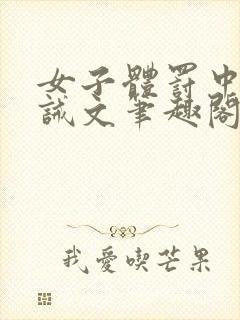 女子體罰中
誡文筆趣閣
我愛喫芒果